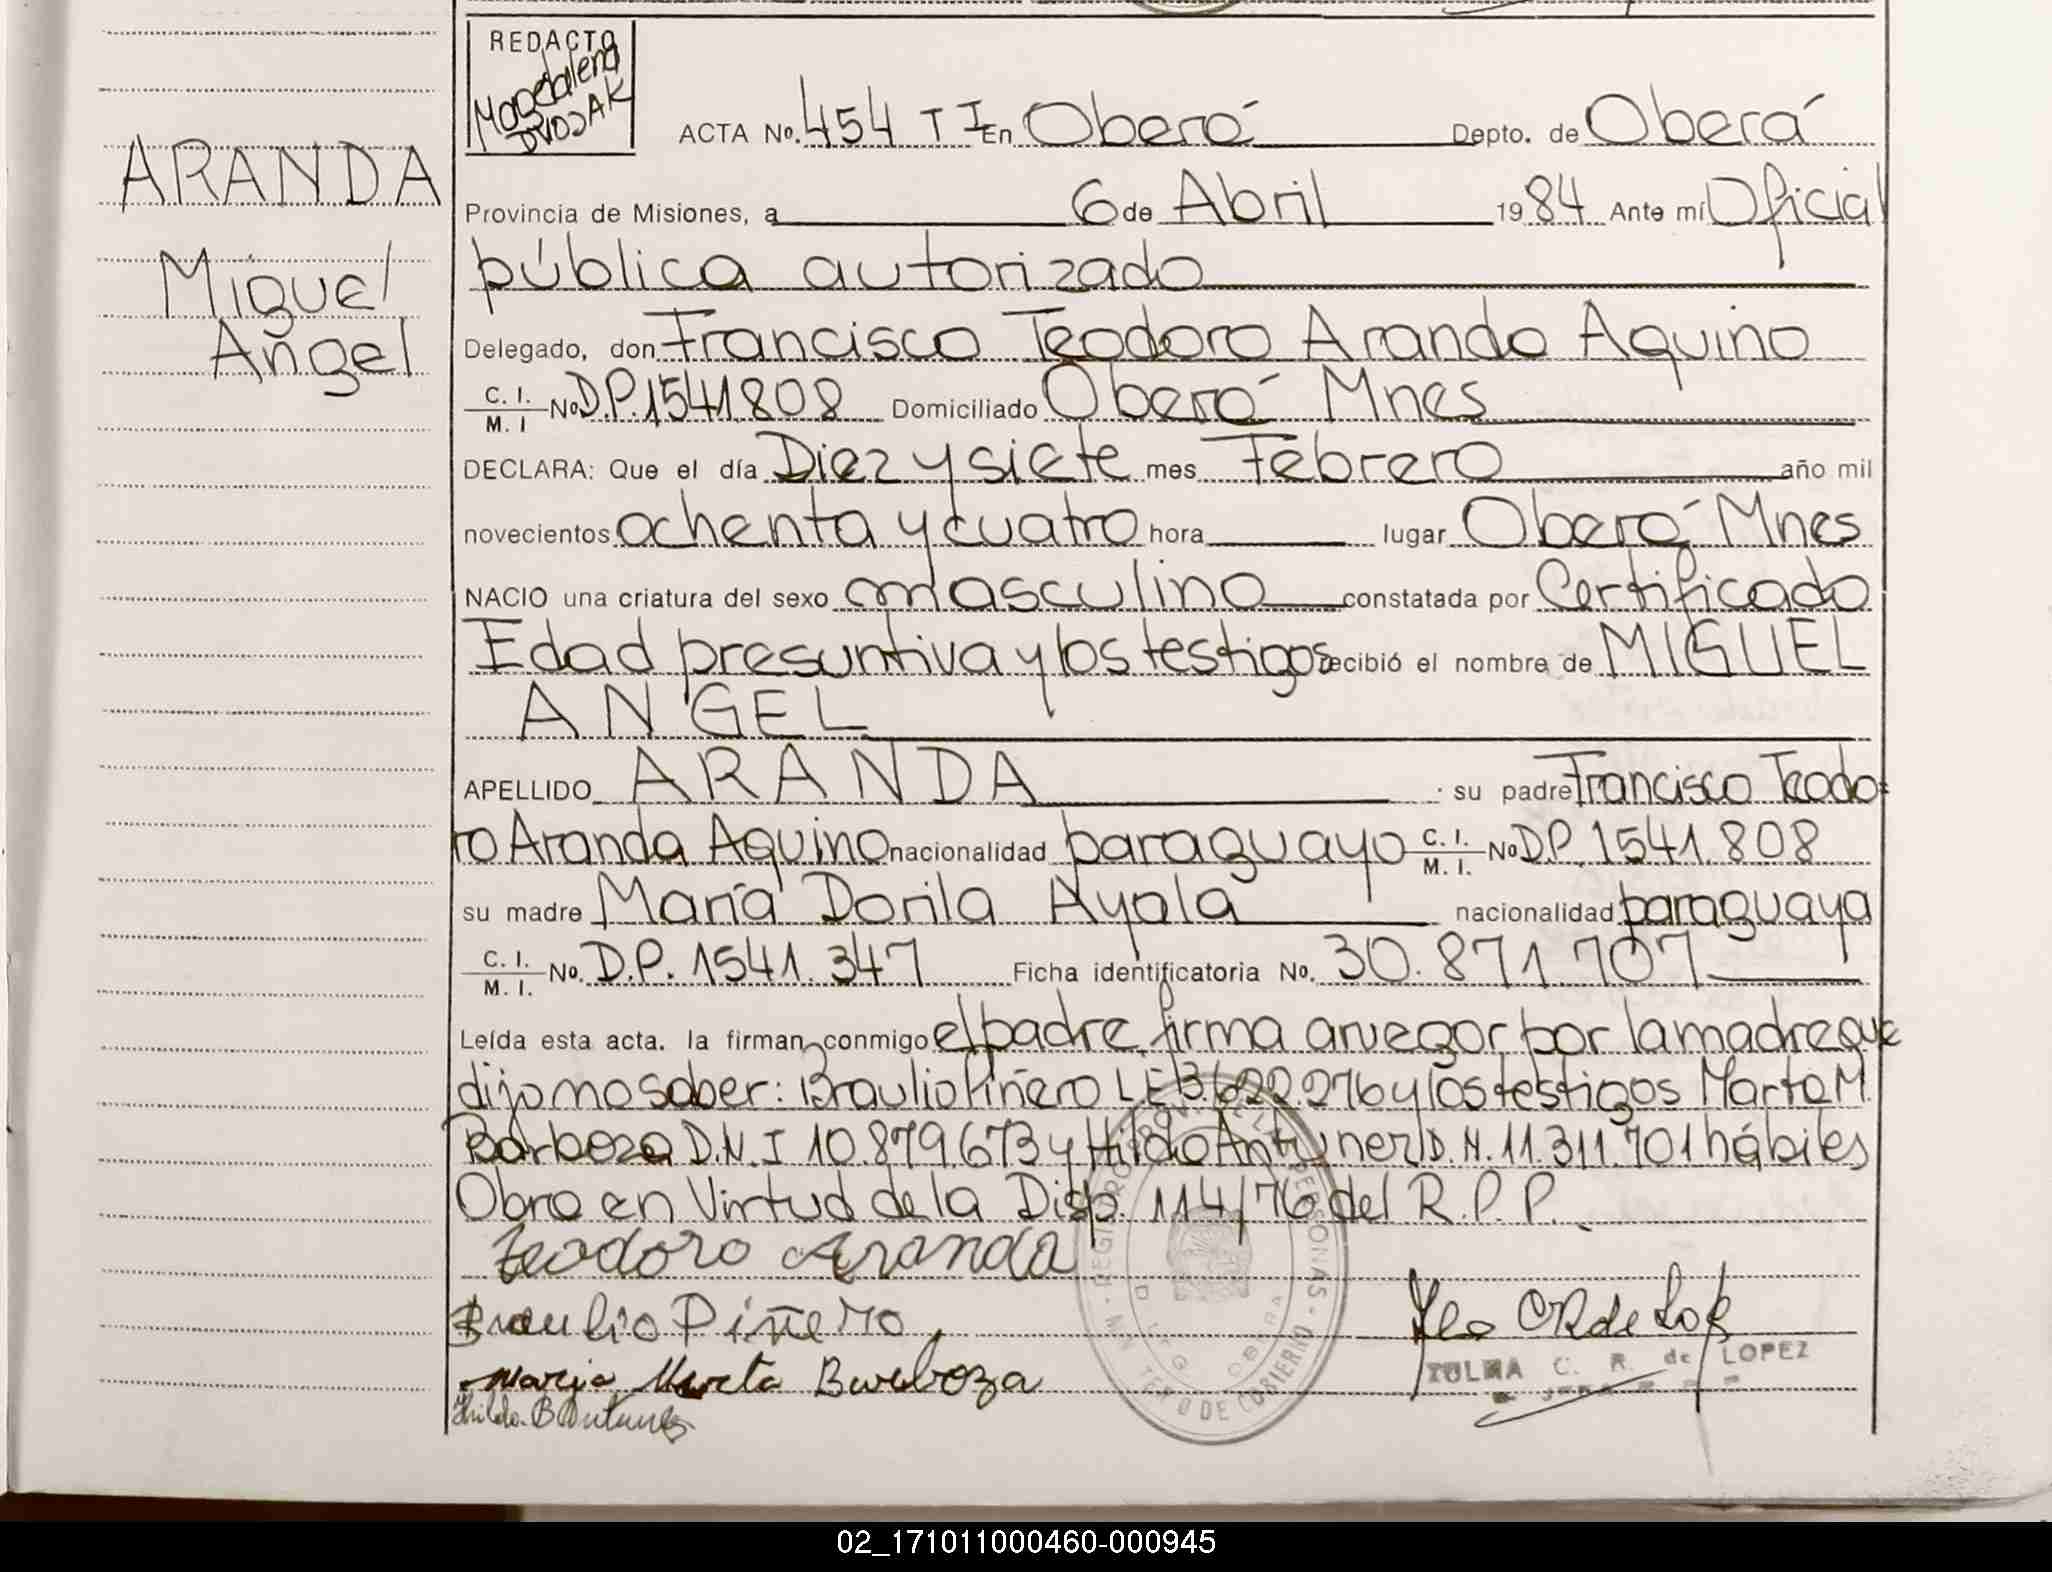 REDACTO
Magdalena
DVOJAK
ARANDA
Miguel
Angel
ACTA No. 454 T I En Oberá Depto. de Oberá
Provincia de Misiones, a 6 de Abril 1984 Ante mí Oficial
pública autorizado
Delegado, don Francisco Teodoro Aranda Aquino
C. I. M. I No D.P. 1541.808 Domiciliado Oberá Mnes
DECLARA: Que el día Diez y siete mes Febrero año mil
novecientos ochenta y cuatro hora lugar Oberá Mnes
NACIO una criatura del sexo masculino constatada por Certificado
Edad presuntiva y los testigos recibió el nombre de MIGUEL
ANGEL
APELLIDO ARANDA su padre Francisco Teodo=
ro Aranda Aquino nacionalidad paraguayo C. I. M. I. No D.P. 1541.808
su madre María Dorila Ayala nacionalidad paraguaya
C. I. M. I. No. D.P. 1541.347 Ficha identificatoria No. 30.871.707
Leída esta acta. la firman conmigo el padre, firma a ruego por la madre que
dijo no saber: Braulio Piñero L.E 3.622.276 y los testigos Marta M.
Barboza D.N.I 10.879.673 y Hilda Antunez D.N. 11.311.701 hábiles
Obra en Virtud de la Disp. 114/76 del R.P.P.
Teodoro Aranda
Braulio Piñero
Maria Marta Barboza
Hilda B Antunez
REGISTRO PROV. DE LAS PERSONAS
MINISTERIO DE GOBIERNO
OBERA
C. R. de LOPEZ
02_171011000460-000945